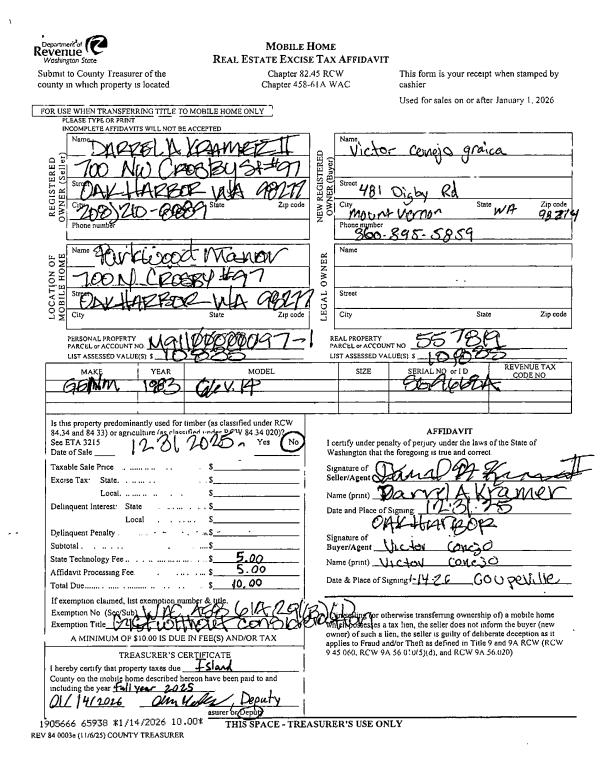 Department of
Revenue
Washington State
MOBILE HOME
REAL ESTATE EXCISE TAX AFFIDAVIT
Submit to County Treasurer of the
county in which property is located
Chapter 82.45 RCW
Chapter 458-61A WAC
This form is your receipt when stamped by
cashier
Used for sales on or after January 1, 2026
FOR USE WHEN TRANSFERRING TITLE TO MOBILE HOME ONLY
PLEASE TYPE OR PRINT
INCOMPLETE AFFIDAVITS WILL NOT BE ACCEPTED
REGISTERED OWNER (Seller)
Name DARREL A KRAMER II
700 NW CROSBY St #97
Street OAK HARBOR WA 98277
City State Zip code
Phone number
NEW REGISTERED OWNER (Buyer)
Name Victor Conejo
Street 481 Digby Rd
City Mount Vernon State WA Zip code
Phone number 360-895-5859
LOCATION OF MOBILE HOME
Name Parkwood Manor
700 N. CROSBY #97
Street OAK HARBOR WA 98277
City State Zip code
LEGAL OWNER
Name
Street
City State Zip code
PERSONAL PROPERTY
PARCEL or ACCOUNT NO
LIST ASSESSED VALUE(S) $
REAL PROPERTY
PARCEL or ACCOUNT NO
LIST ASSESSED VALUE(S) $
MAKE YEAR MODEL SIZE SERIAL NO or I D REVENUE TAX CODE NO
1983
Is this property predominantly used for timber (as classified under RCW
84.34 and 84 33) or agriculture (as classified under RCW 84 34 020)?
See ETA 3215 Yes No
Date of Sale 12 31 2025
Taxable Sale Price $
Excise Tax: State $
Local $
Delinquent Interest: State $
Local $
Delinquent Penalty $
Subtotal $
State Technology Fee $ 5.00
Affidavit Processing Fee $ 5.00
Total Due $ 10.00
If exemption claimed, list exemption number & title.
Exemption No (Sec/Sub) WAC
Exemption Title Gift without
A MINIMUM OF $10.00 IS DUE IN FEE(S) AND/OR TAX
AFFIDAVIT
I certify under penalty of perjury under the laws of the State of
Washington that the foregoing is true and correct
Signature of
Seller/Agent
Name (print) Darryl A Kramer
Date and Place of Signing 12-31-25
OAK HARBOR
Signature of
Buyer/Agent Victor Conejo
Name (print) Victor Conejo
Date & Place of Signing 1-14-26 Coupeville
(or otherwise transferring ownership of) a mobile home
which possesses a tax lien, the seller does not inform the buyer (new
owner) of such a lien, the seller is guilty of deliberate deception as it
applies to Fraud and/or Theft as defined in Title 9 and 9A RCW (RCW
9 45 060, RCW 9A 56 010(5)(d), and RCW 9A 56.020)
TREASURER'S CERTIFICATE
I hereby certify that property taxes due Island
County on the mobile home described hereon have been paid to and
including the year full year 2025
01/14/2026 Deputy
Treasurer or Deputy
1905666 65938 *1/14/2026 10.00*
THIS SPACE - TREASURER'S USE ONLY
REV 84 0003e (11/6/25) COUNTY TREASURER